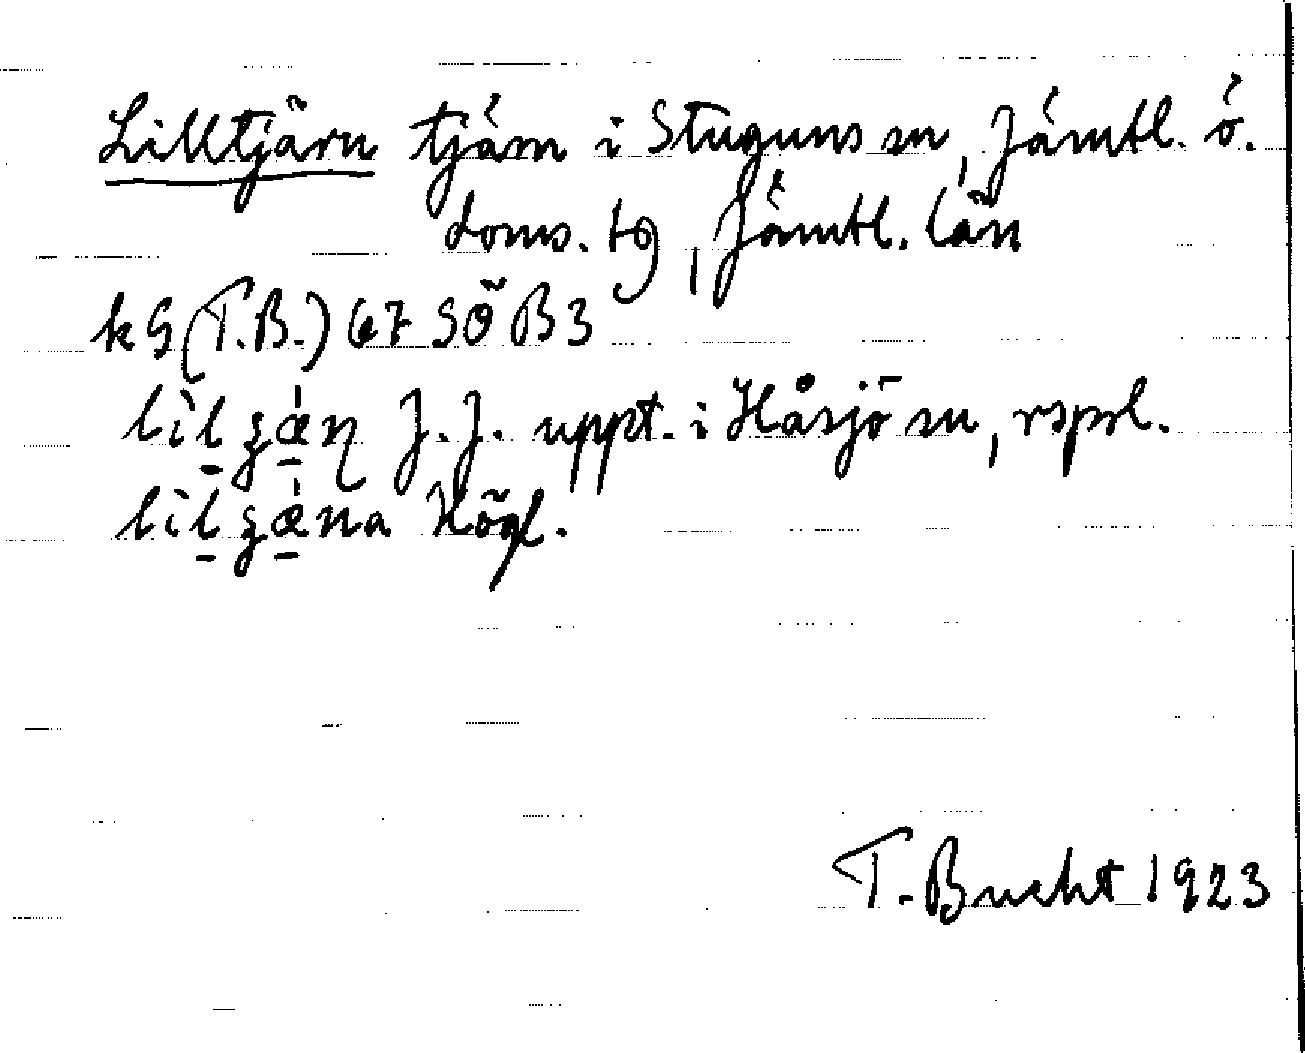 Lilltjärn tjärn i Stuguns sn, Jämtl. ö.
doms. tg, Jämtl. län
kG (T.B.) 67 SÖ B3
J.J. uppt. i Håsjö sn, rsprl.
Högl.
T. Bucht 1923